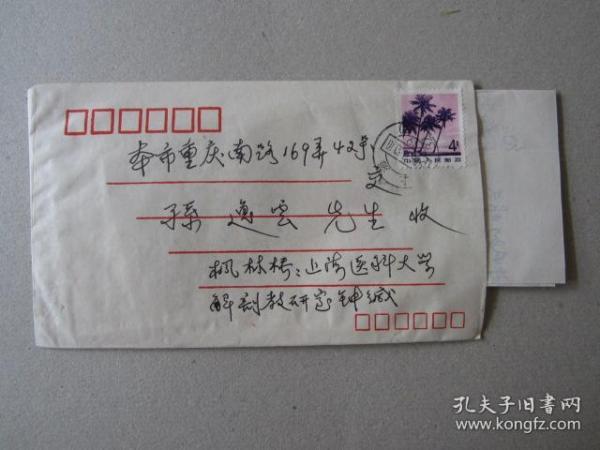 本市重庆南路169弄42号
交
孙逸云先生收
枫林桥:上海医科大学
解剖教研室钟缄
4分
中国人民邮政
孔夫子旧书网
www.kongfz.com